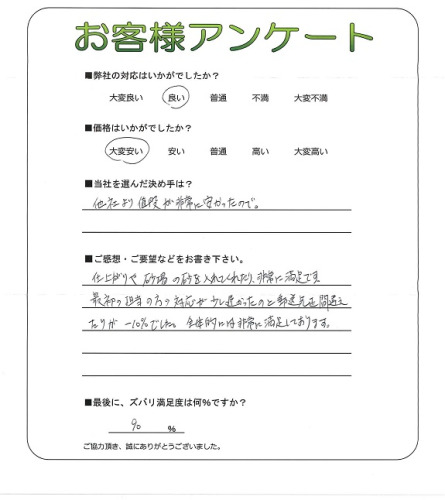 お客様アンケート
■弊社の対応はいかがでしたか？
大変良い 良い 普通 不満 大変不満
■価格はいかがでしたか？
大変安い 安い 普通 高い 大変高い
■当社を選んだ決め手は？
他社より値段が非常に安かったので。
■ご感想・ご要望などをお書き下さい。
仕上がりや砂場の砂を入れてくれたり、非常に満足です。
最初の担当の方の対応が少し遅かったのと郵送先を間違え
たりが -10%でした。全体的には非常に満足しております。
■最後に、ズバリ満足度は何％ですか？
90 ％
ご協力頂き、誠にありがとうございました。